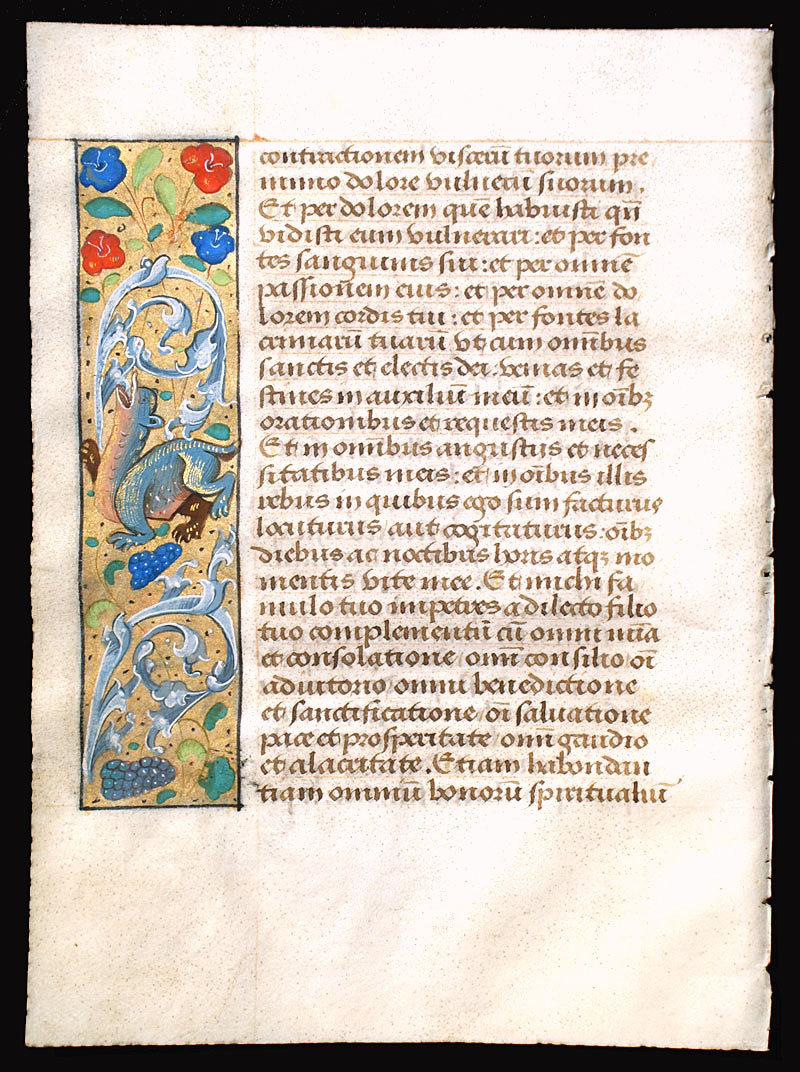 contractionem viscerū tuorum pre
nimio dolore vulnerū suorum.
Et per dolorem quē habuisti qn̄
vidisti eum vulnerari: et per fon
tes sanguinis sui: et per omnē
passionem eius: et per omnē do
lorem cordis tui: et per fontes la
crimarū tuarū vt cum omībus
sanctis et electis dei. venias et fe
stines in auxiliū meū: et in oībꝫ
orationibus et requestis meis.
Et in omībus angustiis et neces
sitatibus meis: et in oībus illis
rebus in quibus ego sum facturus
locuturus aut cogitaturus: oībꝫ
diebus ac noctibus horis atqꝫ mo
mentis vite mee. Et michi fa
mulo tuo impetres a dilecto filio
tuo complementū cū omni mīa
et consolatione omī consilio oī
adiutorio omni benedictione
et sanctificatione oī saluatione
pace et prosperitate omī gaudio
et alacritate. Etiam habondan
tiam omniū bonorū spiritualiū